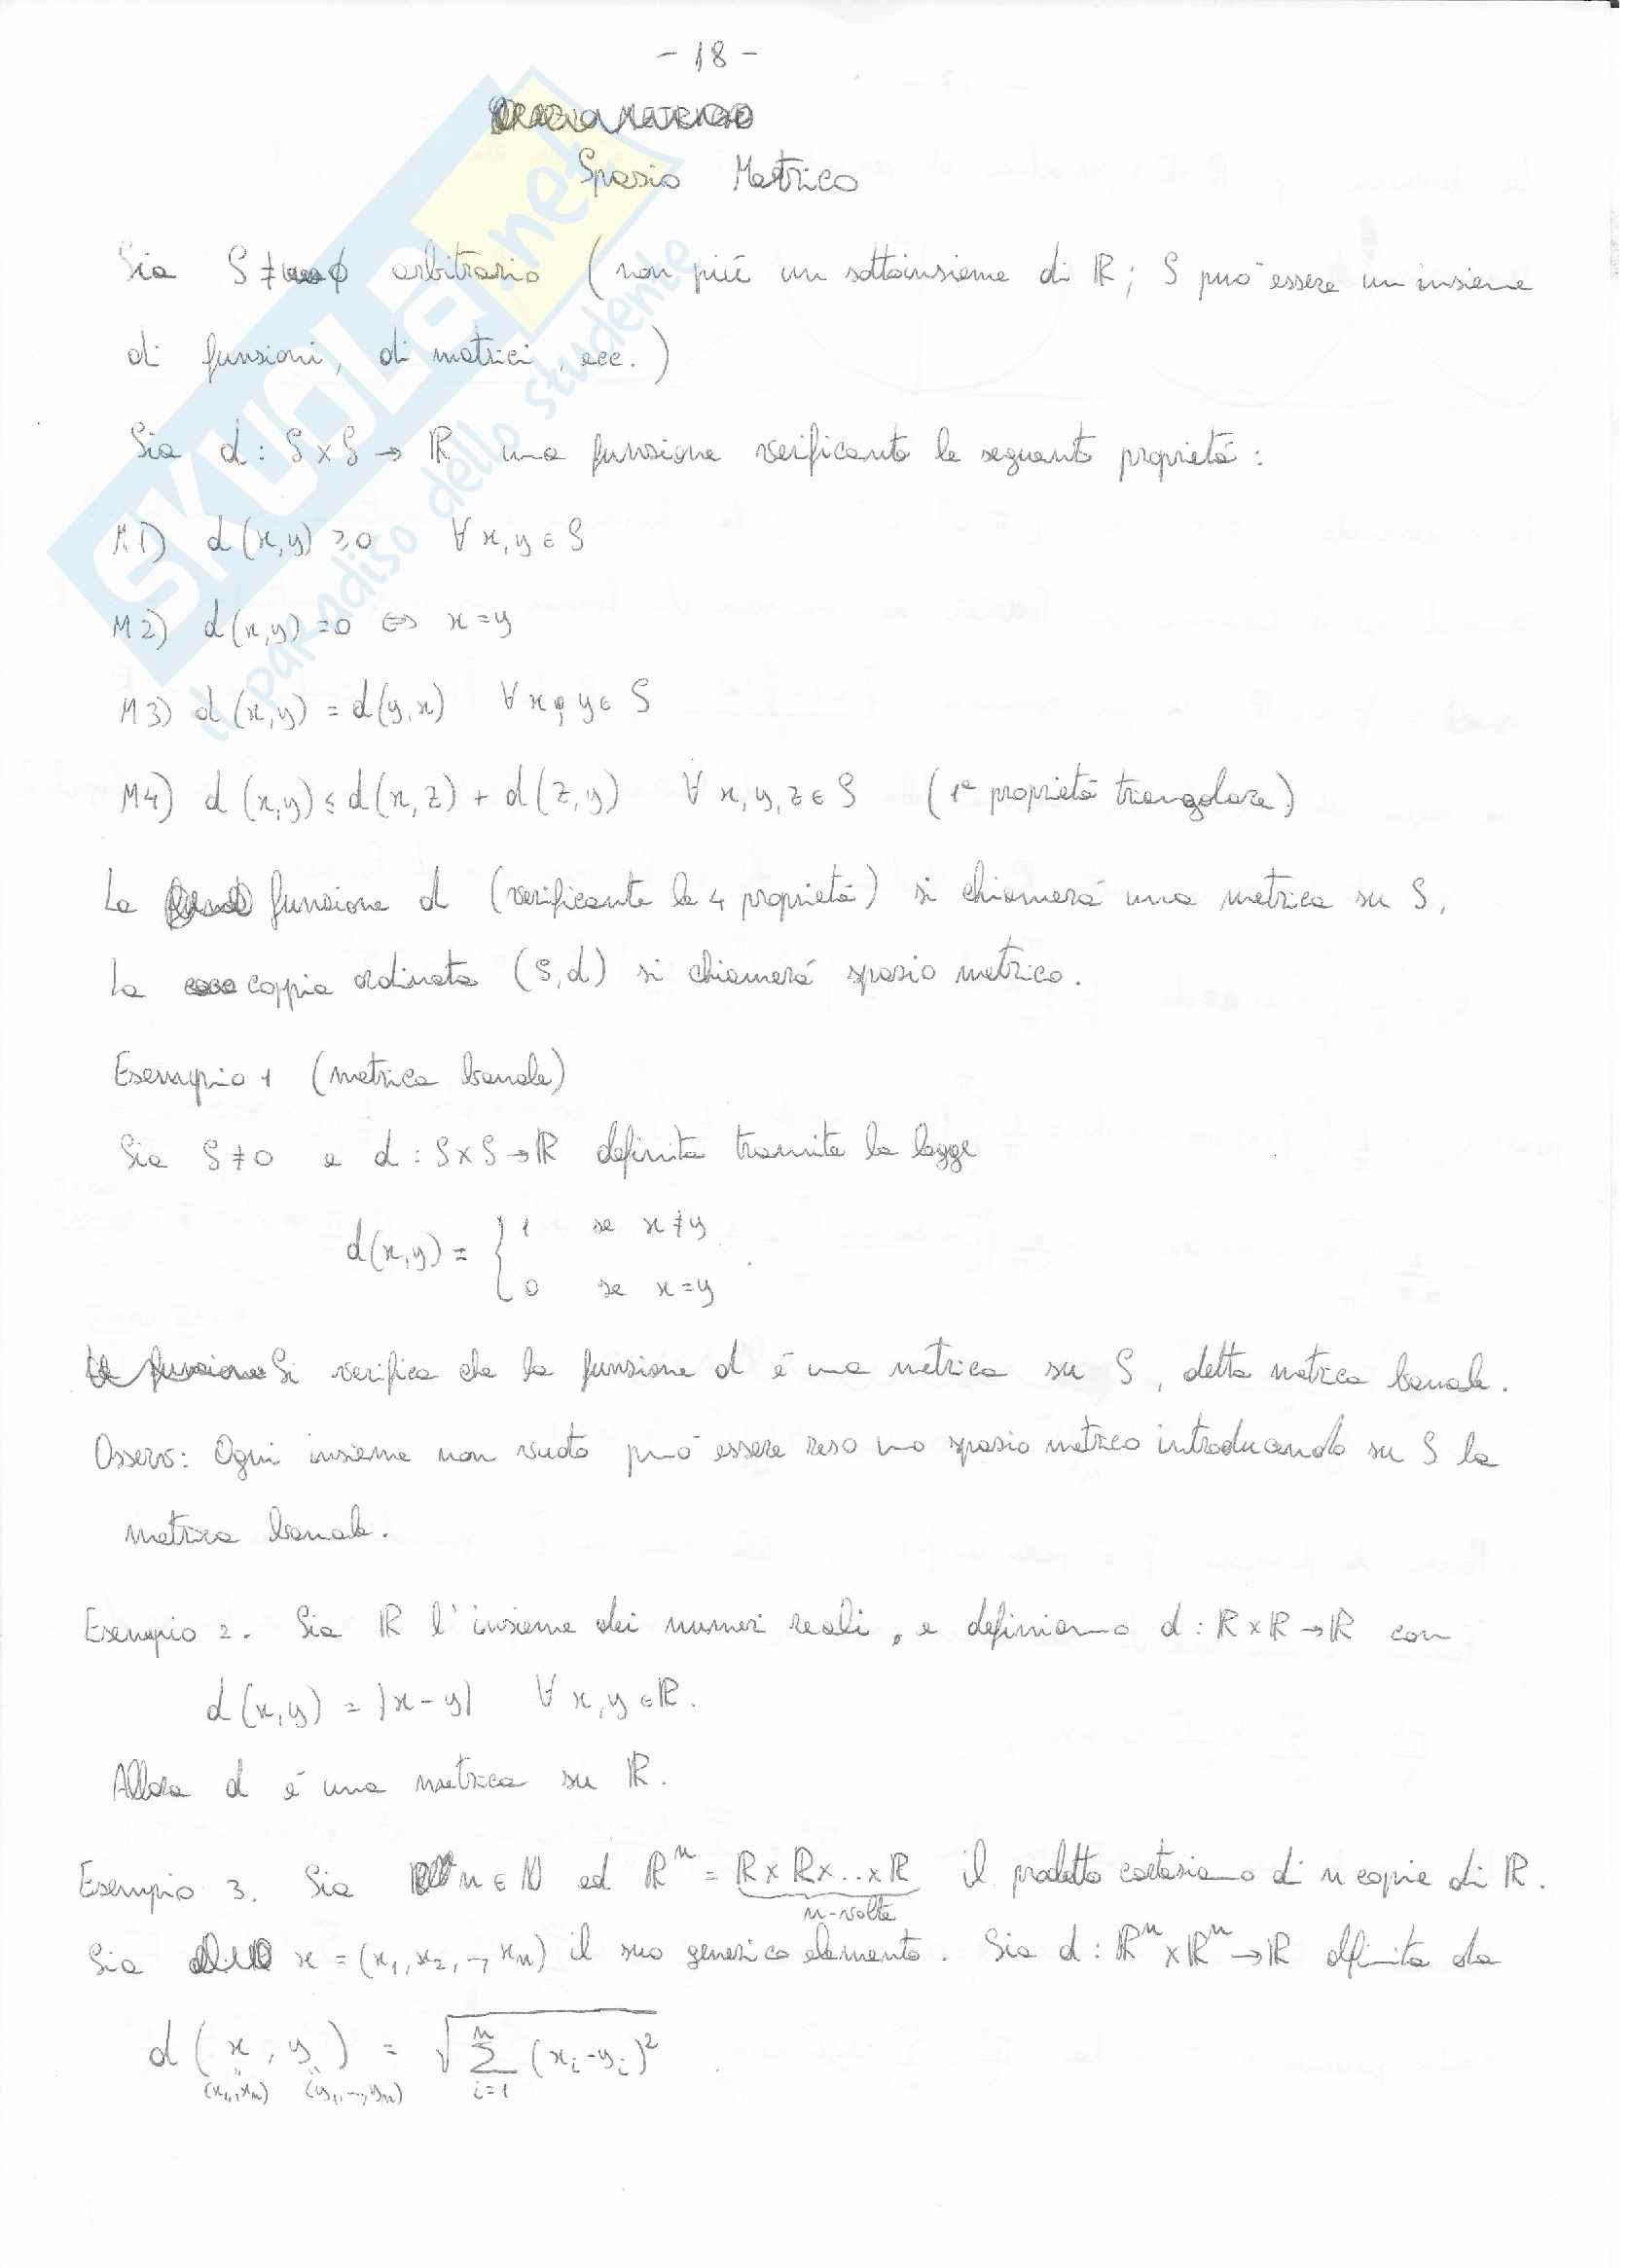 - 18 -
Spazio Metrico
Sia S ≠ ∅ arbitrario (non più un sottoinsieme di ℝ; S può essere un insieme
di funzioni, di matrici, ecc.)
Sia d : S×S → ℝ una funzione verificante le seguenti proprietà:
M1) d(x,y) ≥ 0 ∀ x,y ∈ S
M2) d(x,y) = 0 ⇔ x = y
M3) d(x,y) = d(y,x) ∀ x, y ∈ S
M4) d(x,y) ≤ d(x,z) + d(z,y) ∀ x,y,z ∈ S (1ª proprietà triangolare)
La funzione d (verificante le 4 proprietà) si chiamerà una metrica su S,
la coppia ordinata (S,d) si chiamerà spazio metrico.
Esempio 1 (metrica banale)
Sia S ≠ 0 e d : S×S → ℝ definita tramite la legge
d(x,y) = { 1 se x ≠ y
0 se x = y
Si verifica che la funzione d è una metrica su S, detta metrica banale.
Osserv: Ogni insieme non vuoto può essere reso uno spazio metrico introducendo su S la
metrica banale.
Esempio 2. Sia ℝ l'insieme dei numeri reali, e definiamo d : ℝ×ℝ → ℝ con
d(x,y) = |x-y| ∀ x,y ∈ ℝ.
Allora d è una metrica su ℝ.
Esempio 3. Sia n ∈ ℕ ed ℝⁿ = ℝ×ℝ×...×ℝ il prodotto cartesiano di n copie di ℝ.
n-volte
Sia x = (x₁,x₂,..,xₙ) il suo generico elemento. Sia d : ℝⁿ×ℝⁿ → ℝ definita da
d(x, y) = √ n∑i=1 (xᵢ-yᵢ)²
(x₁,..,xₙ) (y₁,..,yₙ)
SKUOLA.net
il paradiso dello studente